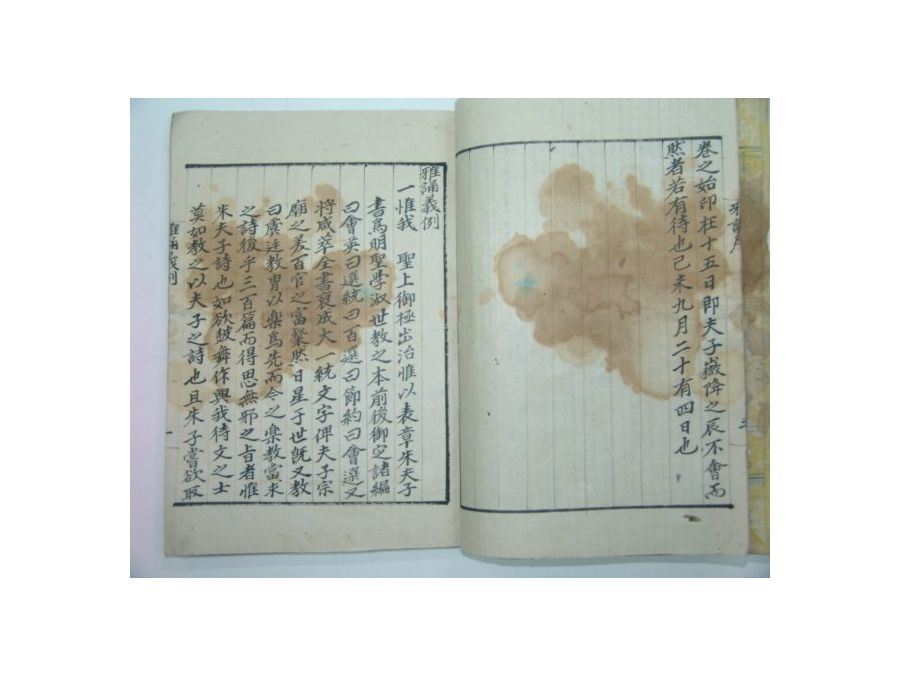 卷之始印在十五日即夫子嶽降之辰不會而
然者若有待也己未九月二十有四日也
雅誦義例
一惟我 聖上御極出治惟以表章朱夫子
書爲明聖學淑世敎之本前後御定諸編
曰會英曰選統曰百選曰節約曰會選又
將咸萃全書裒成大一統文字俾夫子宗
廟之美百官之富粲然日星于世旣又敎
曰虞廷敎冑以樂爲先而今之樂敎當求
之詩後乎三百篇而得思無邪之旨者惟
朱夫子詩也如欲皷舞作興我待文之士
莫如敎之以夫子之詩也且朱子嘗欲取
雅誦義例
一